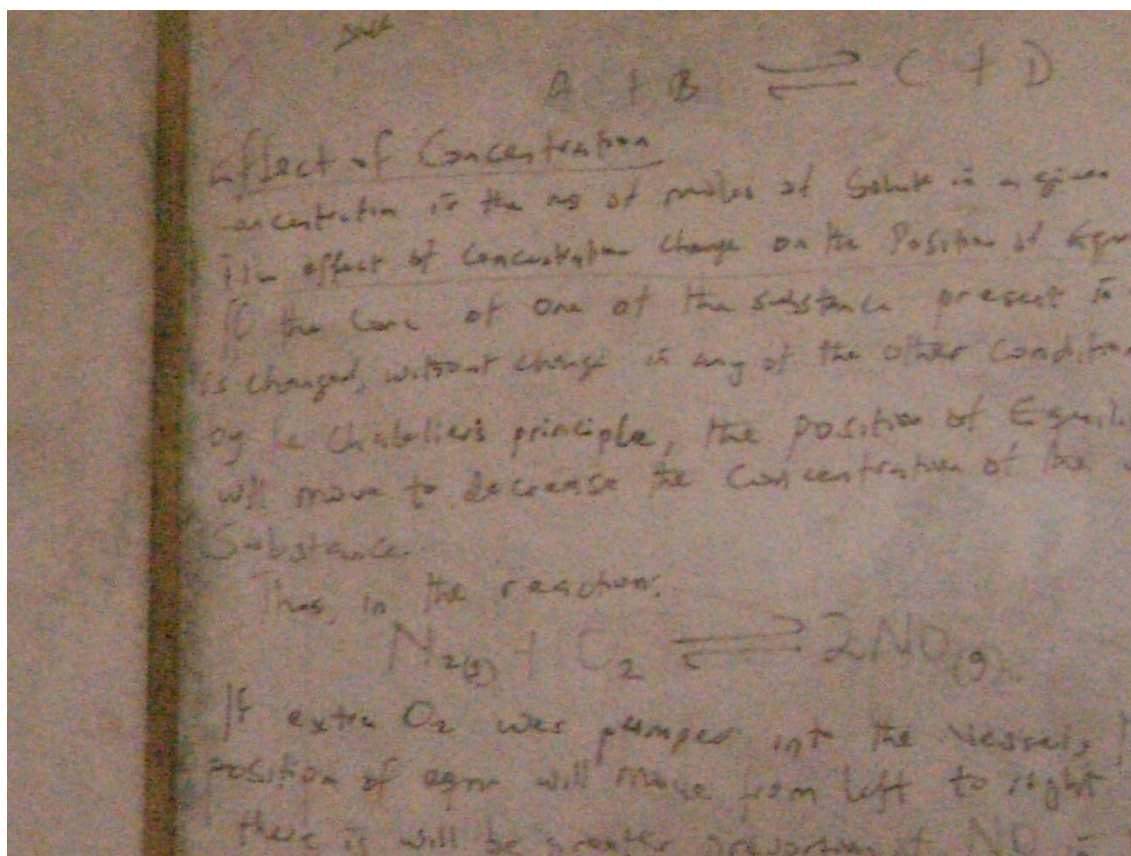 A + B ⇌ C + D
Effect of Concentration
is the no of moles of Solute in a given
effect of Concentration Change on the Position of
If the Conc of One of the substance present in
is changed, without change in any of the other Condition
by le Chatelier's principle, the position of
will move to decrease the Concentration of the
Substance.
Thus, in the reaction:
N2(g) + O2 ⇌ 2NO(g)
If extra O2 was pumped into the Vessel,
position of eqm will move from left to right
there is will be greater proportion of NO